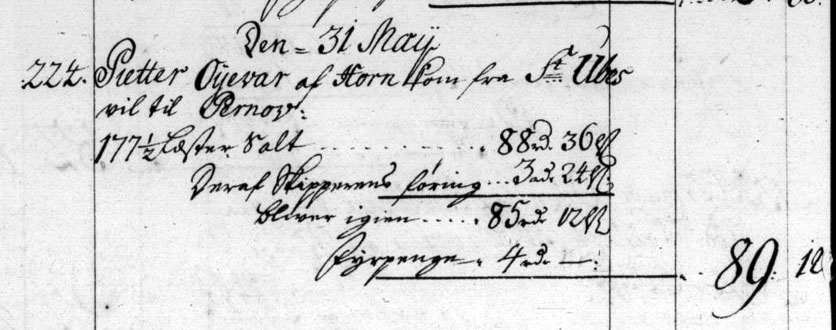 Den 31 Maÿ
224. Pietter Oÿevar af Horn kom fra St Ubes
vil til Pernov:
177½ Læster Salt 88 rd. 36 ß
Deraf Skipperens föring 3 rd. 24 ß
bliver igien 85 rd. 12 ß
Fÿrpenge 4 rd. — : 89. 12